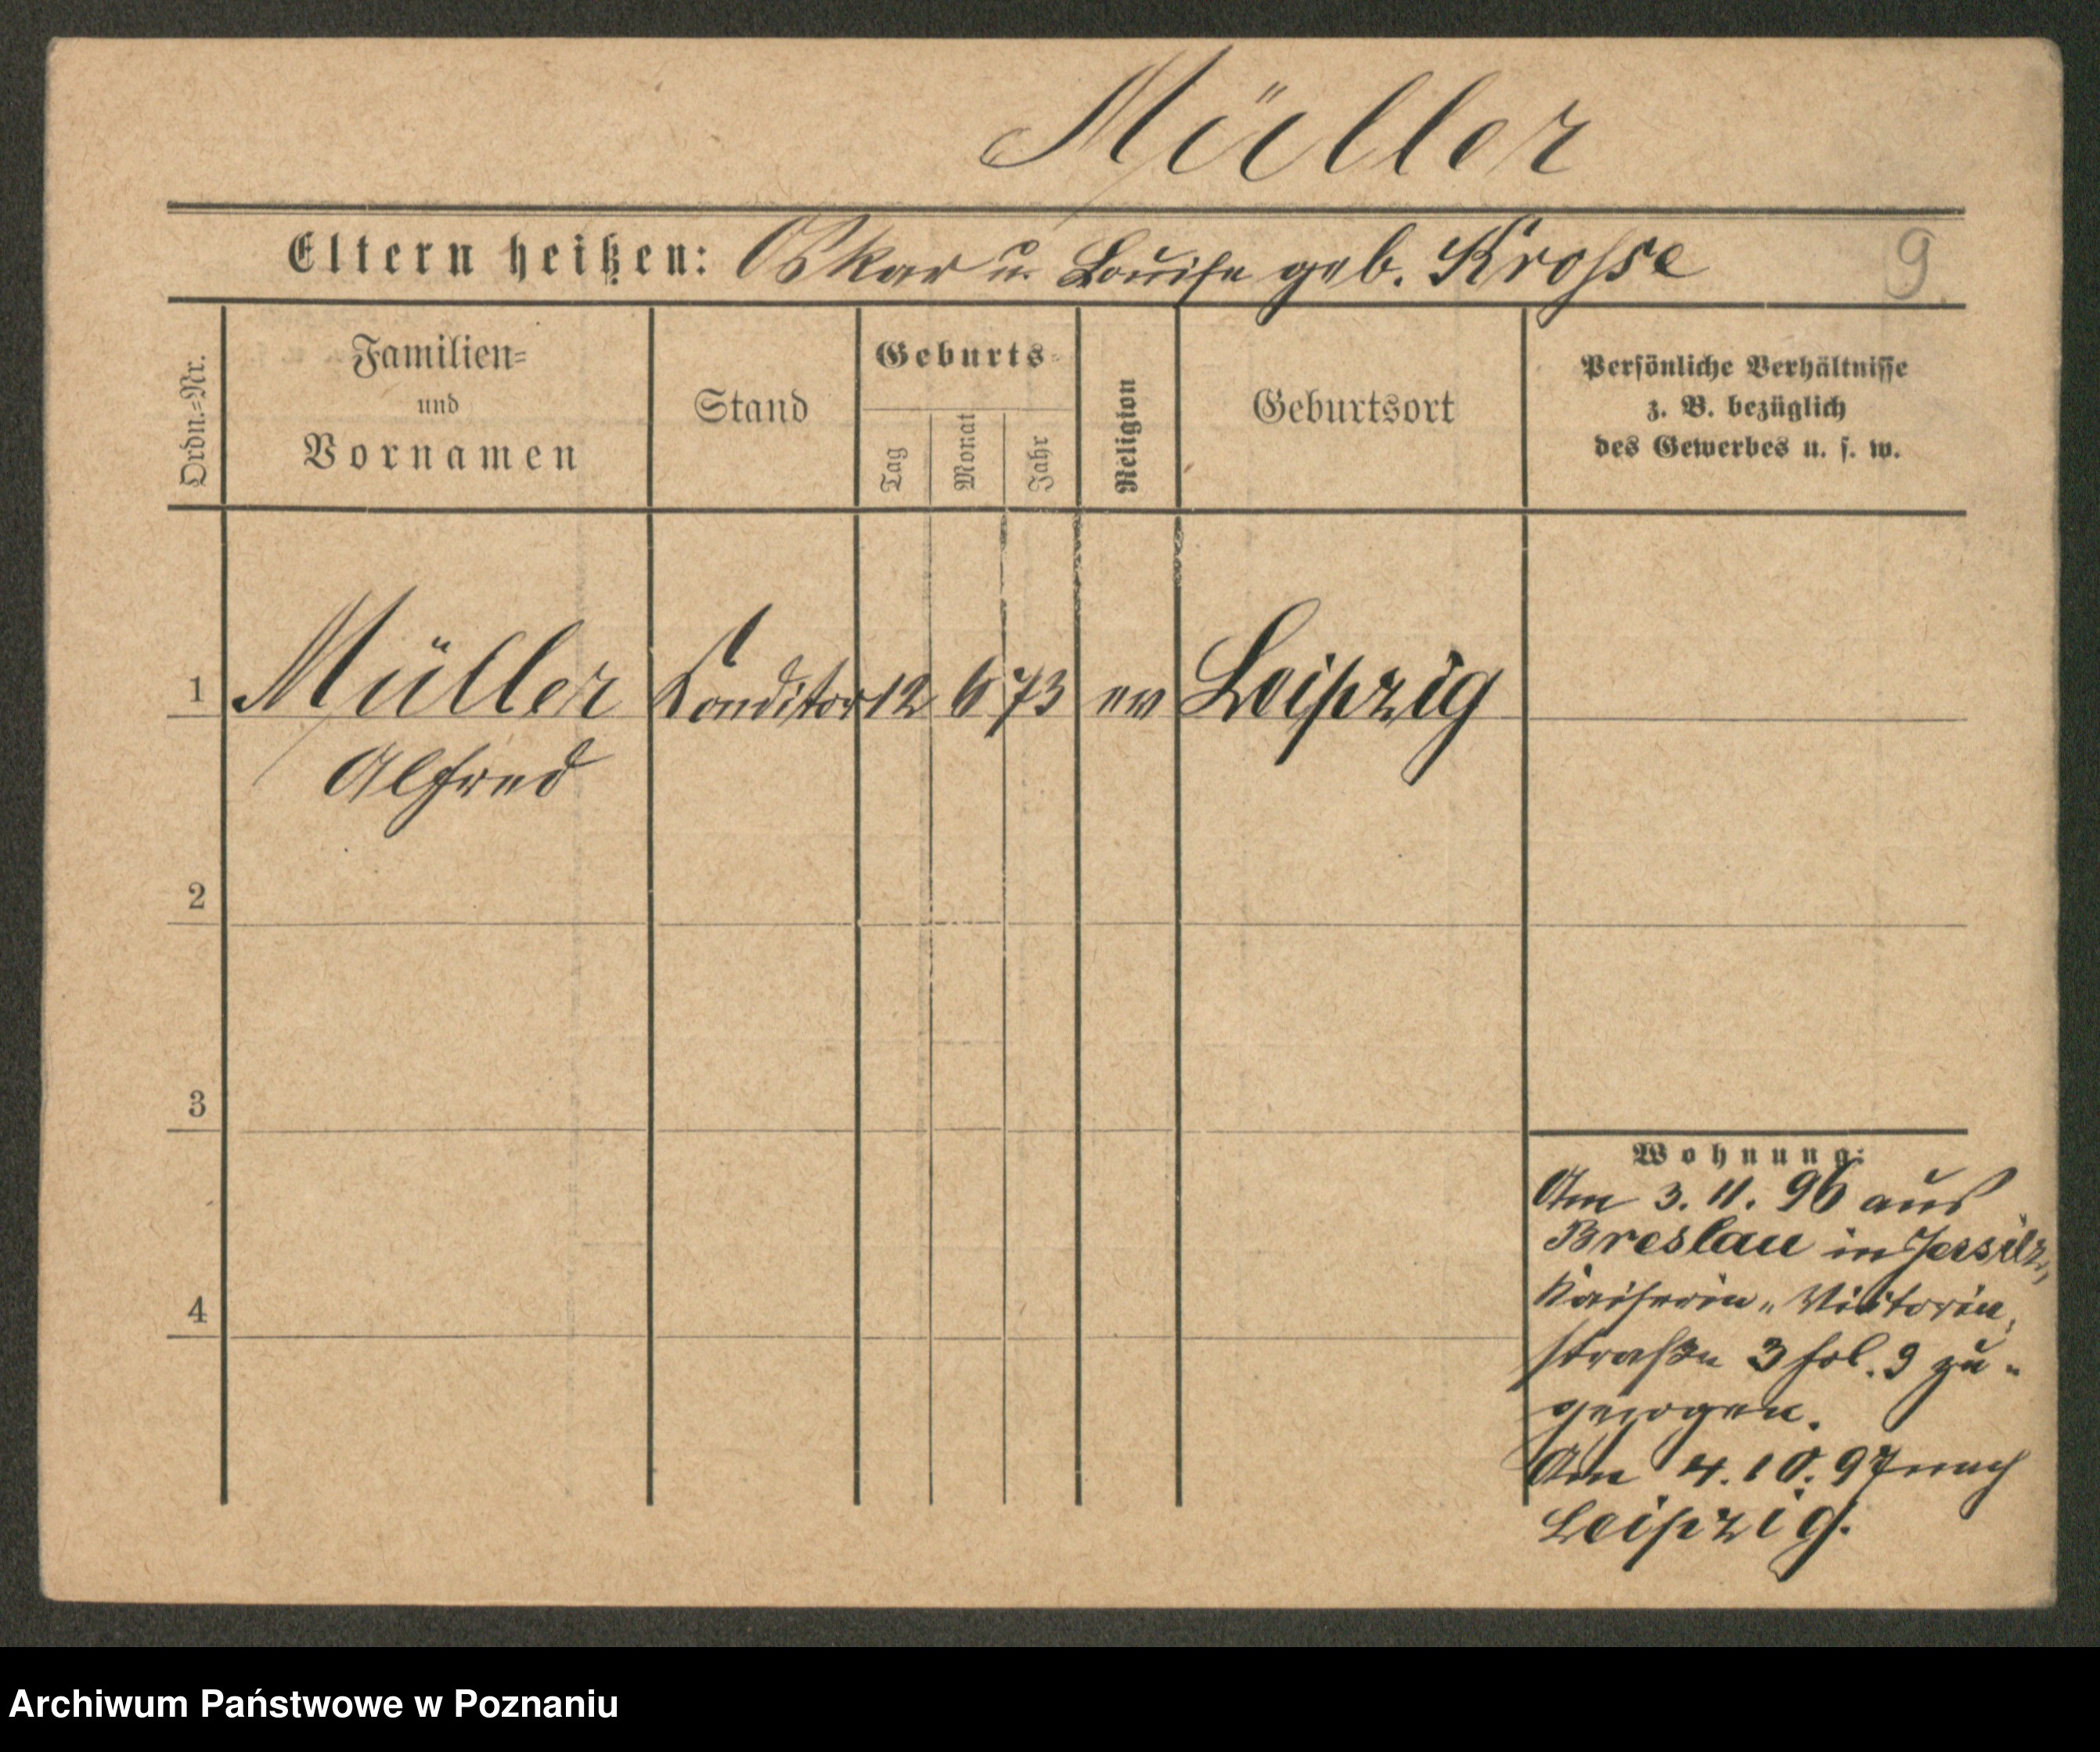 Müller
Eltern heißen: Oskar u. Louise geb. Krosse
9
Ordn.=Nr.
Familien=
und
Vornamen
Stand
Geburts=
Tag
Monat
Jahr
Religion
Geburtsort
Persönliche Verhältnisse
z. B. bezüglich
des Gewerbes u. s. w.
1 Müller Konditor 12 6 73 ev Leipzig
Alfred
2
3
4
Wohnung:
Am 3. 11. 96 aus
Breslau in Jersitz,
Kaiserin-Victoria,
straße 3 fol. 9 zu-
gezogen.
Am 4. 10. 97 nach
Leipzig.
Archiwum Państwowe w Poznaniu